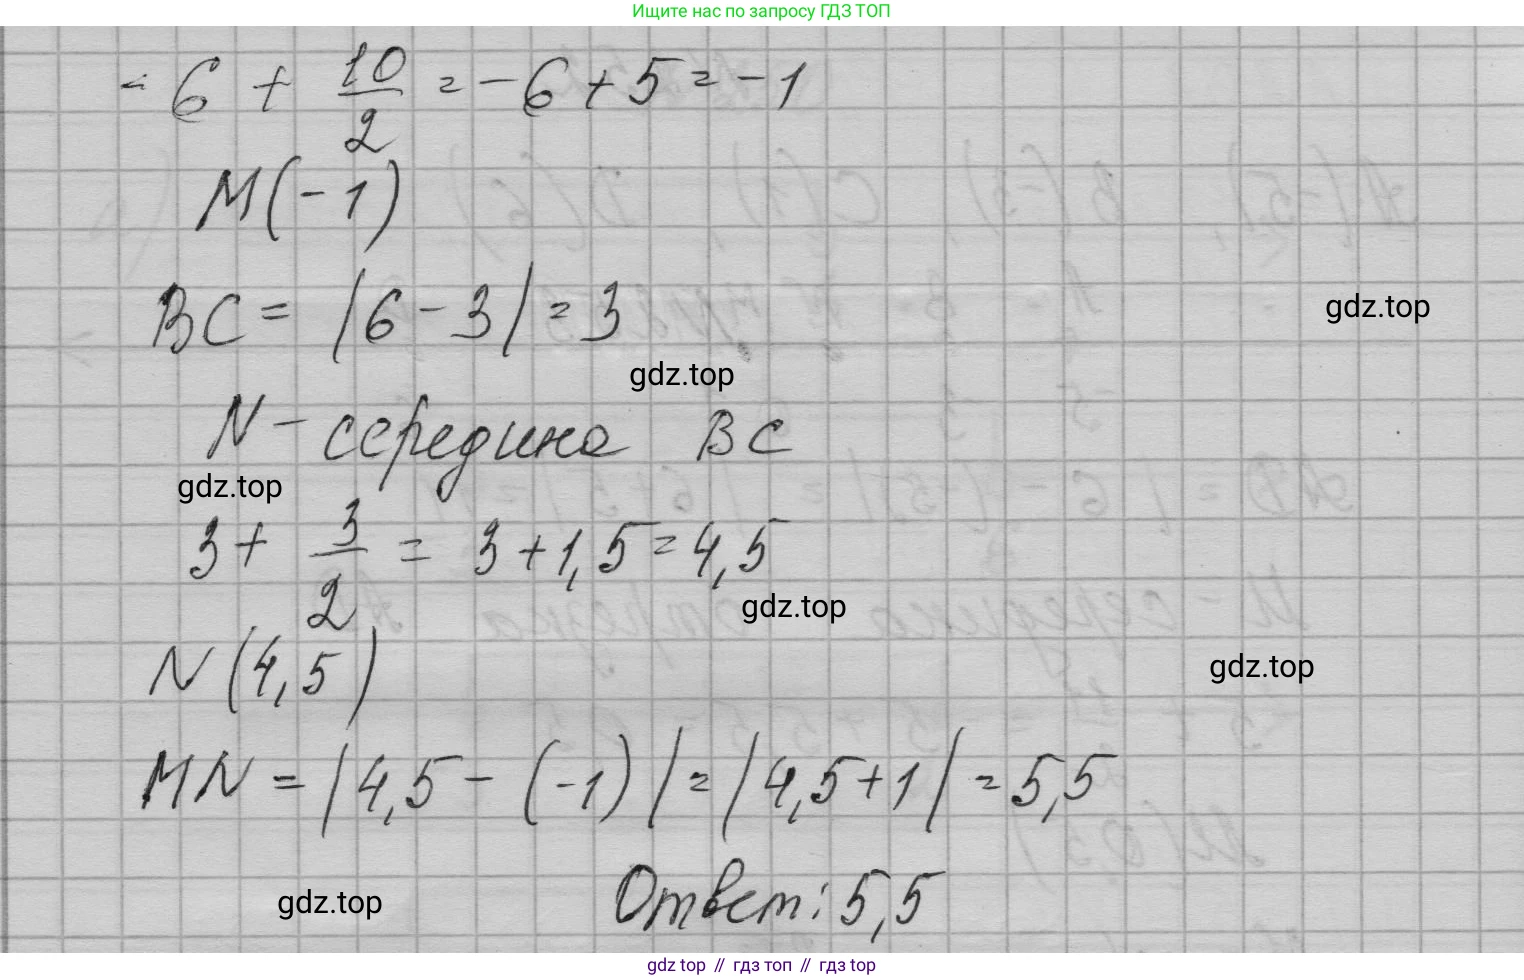 Ищите нас по запросу ГДЗ ТОП
- 6 + 10/2 = -6 + 5 = -1
M(-1)
BC = |6 - 3| = 3
gdz.top
gdz.top
N - середина BC
gdz.top
3 + 3/2 = 3 + 1,5 = 4,5
gdz.top
N (4,5)
gdz.top
MN = |4,5 - (-1)| = |4,5 + 1| = 5,5
Ответ: 5,5
gdz.top
gdz top // гдз топ // гдз top